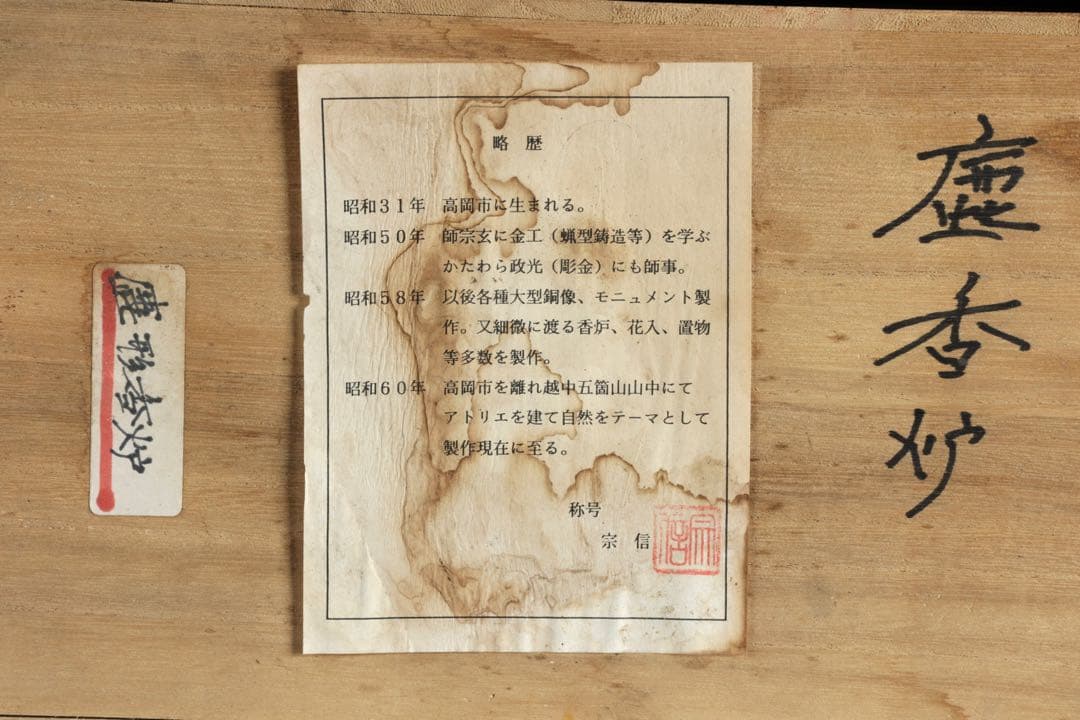 鹿香炉
略歴
昭和31年 高岡市に生まれる。
昭和50年 師宗玄に金工（蝋型鋳造等）を学ぶ
かたわら政光（彫金）にも師事。
昭和58年 以後各種大型銅像、モニュメント製
作。又細微に渡る香炉、花入、置物
等多数を製作。
昭和60年 高岡市を離れ越中五箇山山中にて
アトリエを建て自然をテーマとして
製作現在に至る。
称号
宗信
宗信
鹿 香炉